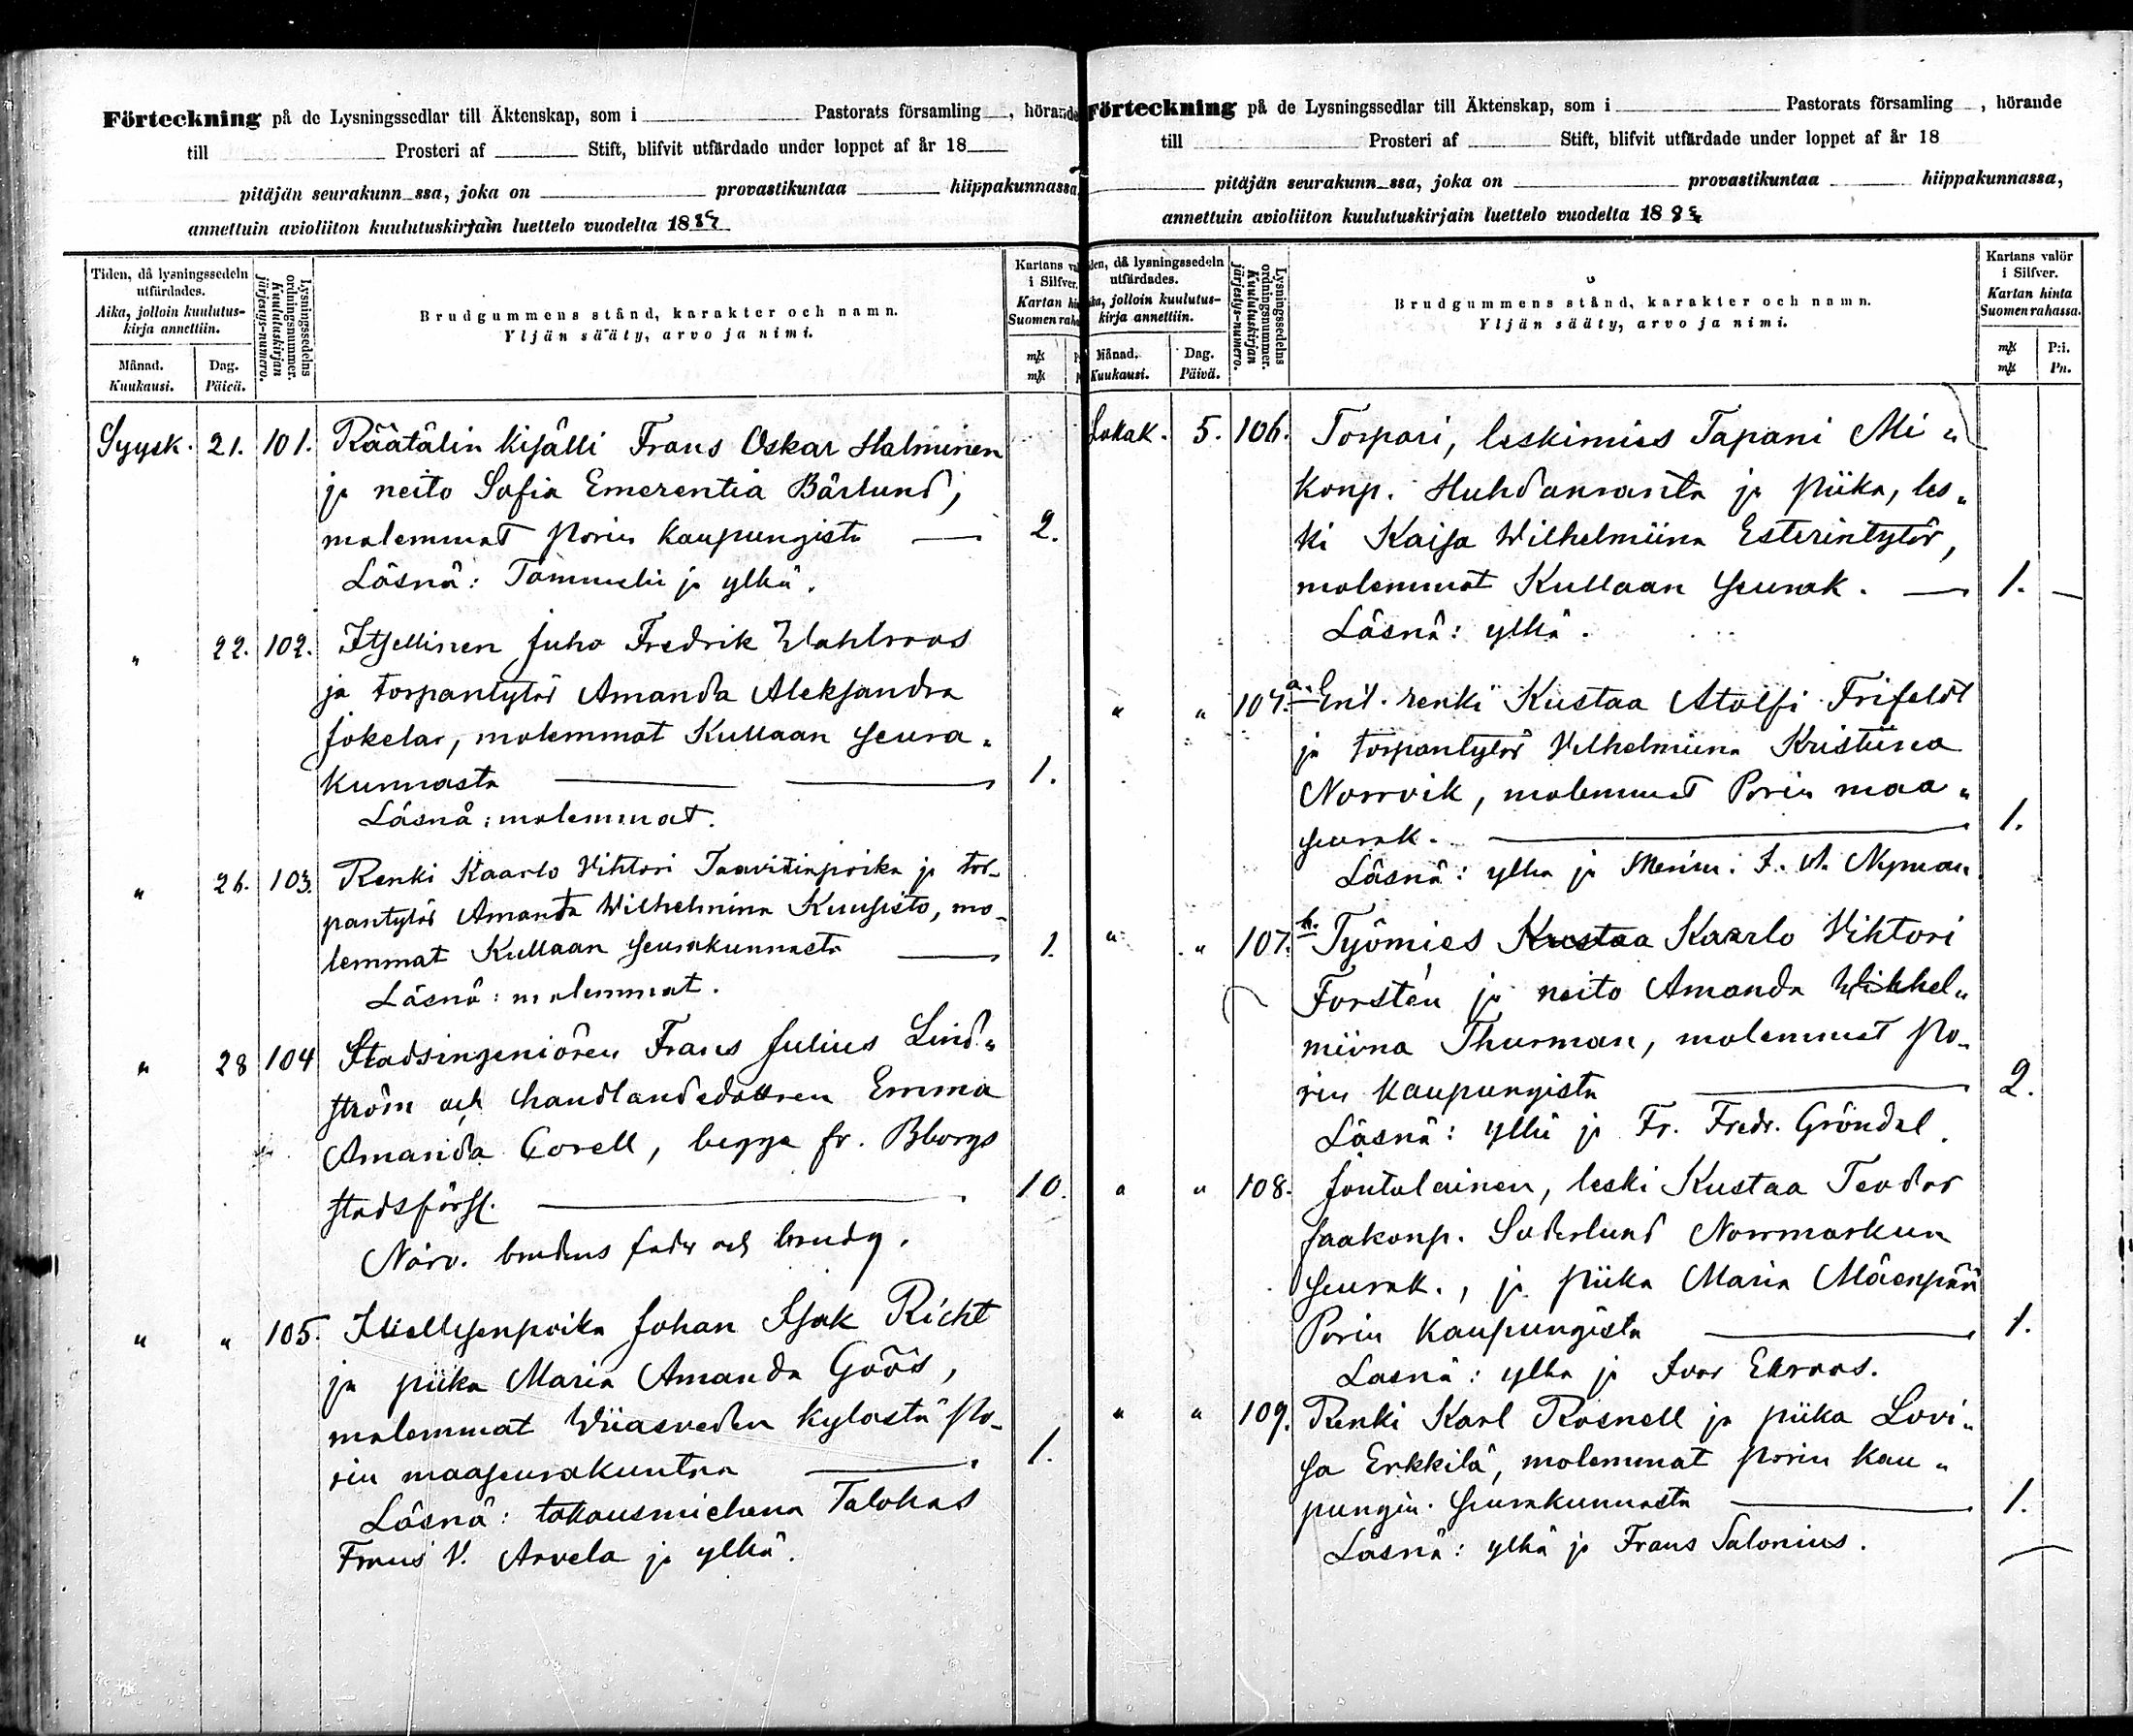 Förteckning på de Lysningssedlar till Äktenskap, som i Pastorats församling , hörande
till Prosteri af Stift, blifvit utfärdade under loppet af år 18
pitäjän seurakunn ssa, joka on provastikuntaa hiippakunnassa,
annettuin avioliiton kuulutuskirjain luettelo vuodelta 1889
Tiden, då lysningssedeln
utfärdades.
Aika, jolloin kuulutus-
kirja annettiin.
Månad.
Kuukausi.
Dag.
Päivä.
Lysningssedelns
ordningsnummer.
Kuulutuskirjan
järjestys-numero.
Brudgummens stånd, karakter och namn.
Yljän sääty, arvo ja nimi.
Kartans
i Silfver.
Kartan
Suomen
mk
mk
Syysk. 21. 101. Räätälin kisälli Frans Oskar Halminen
ja neito Sofia Emerentia Bärlund,
molemmat Porin kaupungista — 2.
Läsnä: Tammelin ja ylkä.
" 22. 102. Itsellinen Juho Fredrik Wahlroos
ja torpantytär Amanda Aleksandra
Jokelar, molemmat Kullaan seura-
kunnasta — 1.
Läsnä: molemmat.
" 26. 103. Renki Kaarlo Vihtori Taavitinpoika ja tor-
pantytär Amanda Wilhelmina Kuusisto, mo-
lemmat Kullaan seurakunnasta — 1.
Läsnä: molemmat.
" 28 104 Stadsingeniören Frans Julius Lind-
ström och handlandedottren Emma
Amanda Corell, begge fr. Bborgs
stadsförsl. — 10.
Närv. brudens fader och brudg.
" " 105. Itsellisenpoika Johan Isak Richt
ja piika Maria Amanda Göös,
molemmat Wiiasveden kylästä Po-
rin maaseurakuntaa — 1.
Läsnä: takausmiehenä Talokas
Frans V. Arvela ja ylkä.
Förteckning på de Lysningssedlar till Äktenskap, som i Pastorats församling , hörande
till Prosteri af Stift, blifvit utfärdade under loppet af år 18
pitäjän seurakunn ssa, joka on provastikuntaa hiippakunnassa,
annettuin avioliiton kuulutuskirjain luettelo vuodelta 1889
då lysningssedeln
utfärdades.
jolloin kuulutus-
kirja annettiin.
Månad.
Kuukausi.
Dag.
Päivä.
Lysningssedelns
ordningsnummer.
Kuulutuskirjan
järjestys-numero.
Brudgummens stånd, karakter och namn.
Yljän sääty, arvo ja nimi.
Kartans valör
i Silfver.
Kartan hinta
Suomen rahassa.
mk P:i.
mk Pn.
Lokak. 5. 106. Torpari, leskimies Tapani Mi-
konp. Huhdanranta ja piika, les-
ki Kaisa Wilhelmiina Esterintytär,
molemmat Kullaan seurak. — 1. —
Läsnä: ylkä.
" " 107.a. Ent. renki Kustaa Atolfi Frifeldt
ja torpantytär Vilhelmiina Kristiina
Norrvik, molemmat Porin maa-
seurak. — 1.
Läsnä: ylkä ja Merim. F. A. Nyman
" " 107.b. Työmies Kustaa Kaarlo Vihtori
Forstén ja neito Amanda Wilhel-
miina Thurman, molemmat Po-
rin kaupungista — 2.
Läsnä: ylkä ja Fr. Fredr. Gröndal.
" " 108. Joutolainen, leski Kustaa Teodor
Jaakonp. Söderlund Norrmarkun
seurak., ja piika Maria Mäenpää
Porin kaupungista — 1.
Läsnä: ylkä ja Ivar Ekroos.
" " 109. Renki Karl Rosnell ja piika Lovi-
sa Erkkilä, molemmat Porin kau-
pungin seurakunnasta — 1.
Läsnä: ylkä ja Frans Salonius.